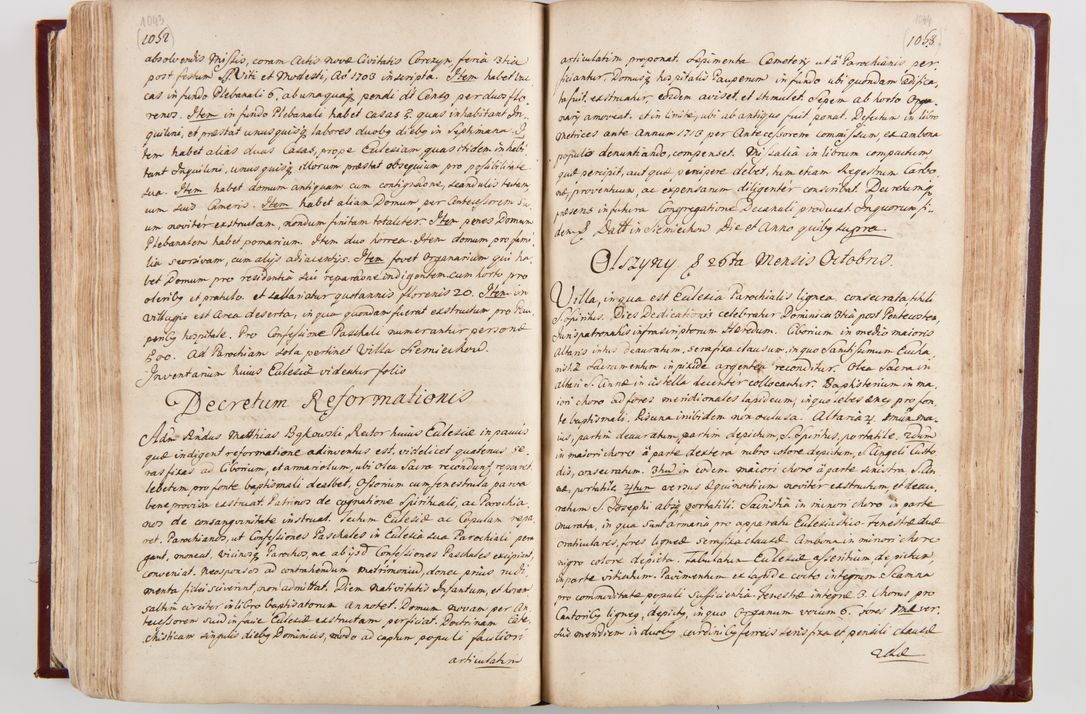 1043
1052
absolvendis Missis, coram Actis novæ Civitatis Corczyn feria 3tia
post festum SS Viti et Modesti, Aō 1703 inscripta. Item habet
cas in fundo Plebanali 6. ab unaquaq pendi dt Censq per duos flo-
renos. Item in fundo Plebanali habet casas quas inhabitant In-
quilini, et præstat unusquisq labores duobq diebq in septimana. I-
tem habet alias duas Casas, prope Ecclesiam quas itidem inhabi
tant Inquilini, unusquisq illorum præstat obsequium pro possibilitate
sua. Item habet domum antiquam cum contignaōne, scandulis tectam,
cum suis Cameris. Item habet aliam Domum per Antecessorem su-
um noviter exstructam, nondum finitam totaliter. Item penes Domum
Plebanalem habet pomarium. Item duo horrea. Item domum pro fami-
lia seorsivam, cum alijs adiacentijs. Item fovet Organarium qui ha-
bet Domum pro residentia sui reparaōne indigentem cum horto pro
oleribq et pratulo. et sallariatur quotannis florenis 20. Item in
villagio est Area deserta, in qua quondam fuerat exstructum pro Pau-
peribq hospitale. Pro Confessione Paschali numerantur personæ
200. Ad Parochiam sola pertinet Villa Siemiechow.
Inventarium huius Ecclesiæ videntur folio
Decretum Reformationis
Adm Rndus Matthias Bykowski Rector huius Ecclesiæ in paucis
quæ indigent reformatione adinventus est, videlicet quatenus se-
ras fixas ad Ciborium, et armariolum, ubi Olea Sacra recondunt reparet
lebetem pro fonte baptismali dealbet, Ossorium cum fenestrula parva
bene provisa exstruat. Patrinos de cognatione Spirituali, ac Parochia-
nos de consanguinitate instruat. Tectum Ecclesiæ ac Copulam repa-
ret. Parochianos, ut Confessiones Paschales in Ecclesia sua Parochiali pera-
gant, moneat, vicinosq Parochos, ne ab ijsd Confessiones Paschales excipiant,
conveniat. Neosponsos ad contrahendum matrimonium, donec prius rudi-
menta fidei sciverint, non admittat. Diem Nativitatis Infantum, et horam
saltim circiter in libro baptisatorum annotet. Domum novam, per An-
tecessorem suum in facie Ecclesiæ exstructam perficiat. Doctrinam Cate-
chisticam singulis diebq Dominicis, modo ad captum populi faciliori
articulatim
1044
1053
articulatim proponat. Sepimenta Cæmeterij ut à Parochianis per-
ficiantur. Domusq hospitalis Pauperum in fundo ubi quondam ædifica-
ta fuit, exstruatur, eosdem aviset, et stimulet. Sepem ab horto Orga-
narij amoveat, et in limite, ubi ab antiquo fuit ponat. Defectum in libro
metrices ante Annum 1718 per Antecessorem comissum, ex ambona
populo denuntiando, compenset. Missalia in librum compactum
quæ percipit, aut quæ percipere debet, tum etiam Regestrum Carbo-
næ, proventuum, ac expensarum diligenter conscribat. Decretumq
præsens in futura Congregatione Decanali producat. In quorum fi-
dem Datt in Siemiechow Die et Anno quibq supra
Olszyny 26ta Mensis Octobris.
Villa, in qua est Ecclesia Parochialis lignea, consecrata, tituli
S. Spiritus. Dies Dedicationis celebratur Dominica 3tia post Pentecosten,
Iurispatronatus infrascriptorum Hæredum. Ciborium in medio maioris
Altaris intus deauratum, sera fixa clausum, in quo Sanctissimum Eucha-
ristiæ Sacramentum in pixide argentea reconditur. Olea Sacra in
altari S. Annæ in cistella decenter collocantur. Baptisterium in ma-
iori choro ad fores meridionales lapideum, in quo lebes æneq pro fon-
te baptismali. Piscina inibidem non oclusa. Altaria 4. 1mum ma-
ius, partim deauratum, partim depictum, S. Spiritus, portatile. 2dum
in maiori choro à parte dextera rubro colore depictum, S. Angeli Custo-
dis, consecratum. 3tiu in eodem maiori choro à parte sinistra S. An-
næ, portatile 4tum versus Æquinoctium noviter exstructum et deau-
ratum S. Iosephi absq portatili. Sacristia in minori choro in parte
murata, in qua sunt armaria pro apparatu Ecclesiastico. Fenestræ duæ
craticulares, fores ligneæ sera fixa clausæ. Ambona in minori choro
nigro colore depicta. Tabulatum Ecclesiæ assertium depictum,
in parte vitiatum. Pavimentum ex lapide cocto integrum. Scamna
pro commoditate populi sufficientia. Fenestræ integræ 3. Chorus pro
Cantoribq ligneq, depictq, in quo Organum vocum 6. Fores 1mæ ver-
sus meridiem in duobq cardinibq ferreis sera fixa et pensili clausæ
2dæ